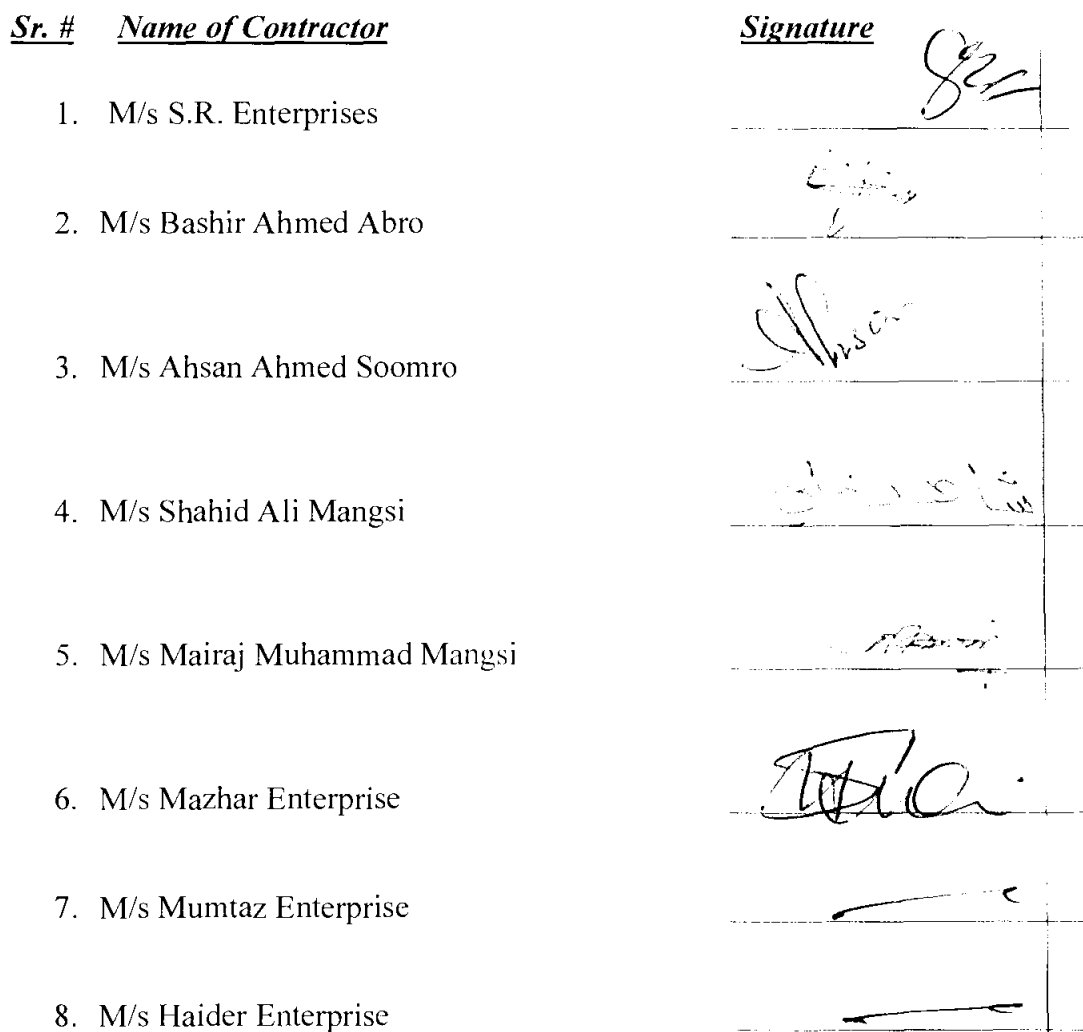 Sr. # Name of Contractor Signature
1. M/s S.R. Enterprises
2. M/s Bashir Ahmed Abro
3. M/s Ahsan Ahmed Soomro
4. M/s Shahid Ali Mangsi شاهد علي
5. M/s Mairaj Muhammad Mangsi
6. M/s Mazhar Enterprise
7. M/s Mumtaz Enterprise
8. M/s Haider Enterprise